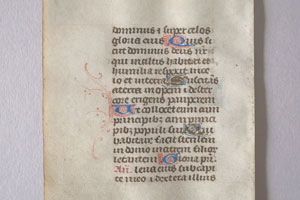 dominus et super celos
gloria eius Quis si
cut dominus deus nr
qui in altis habitat et
humilia respicit in ce
lo et in terra Suscitans
a terra inopem et de ster
core erigens pauperem
Ut collocet eum cum
principibz cum prin
cipibz populi sui Qui
habitare facit sterilem
in domo matrem filior
letantem Gloria pri
An. leva eius sub ca
pite meo et dextera illius